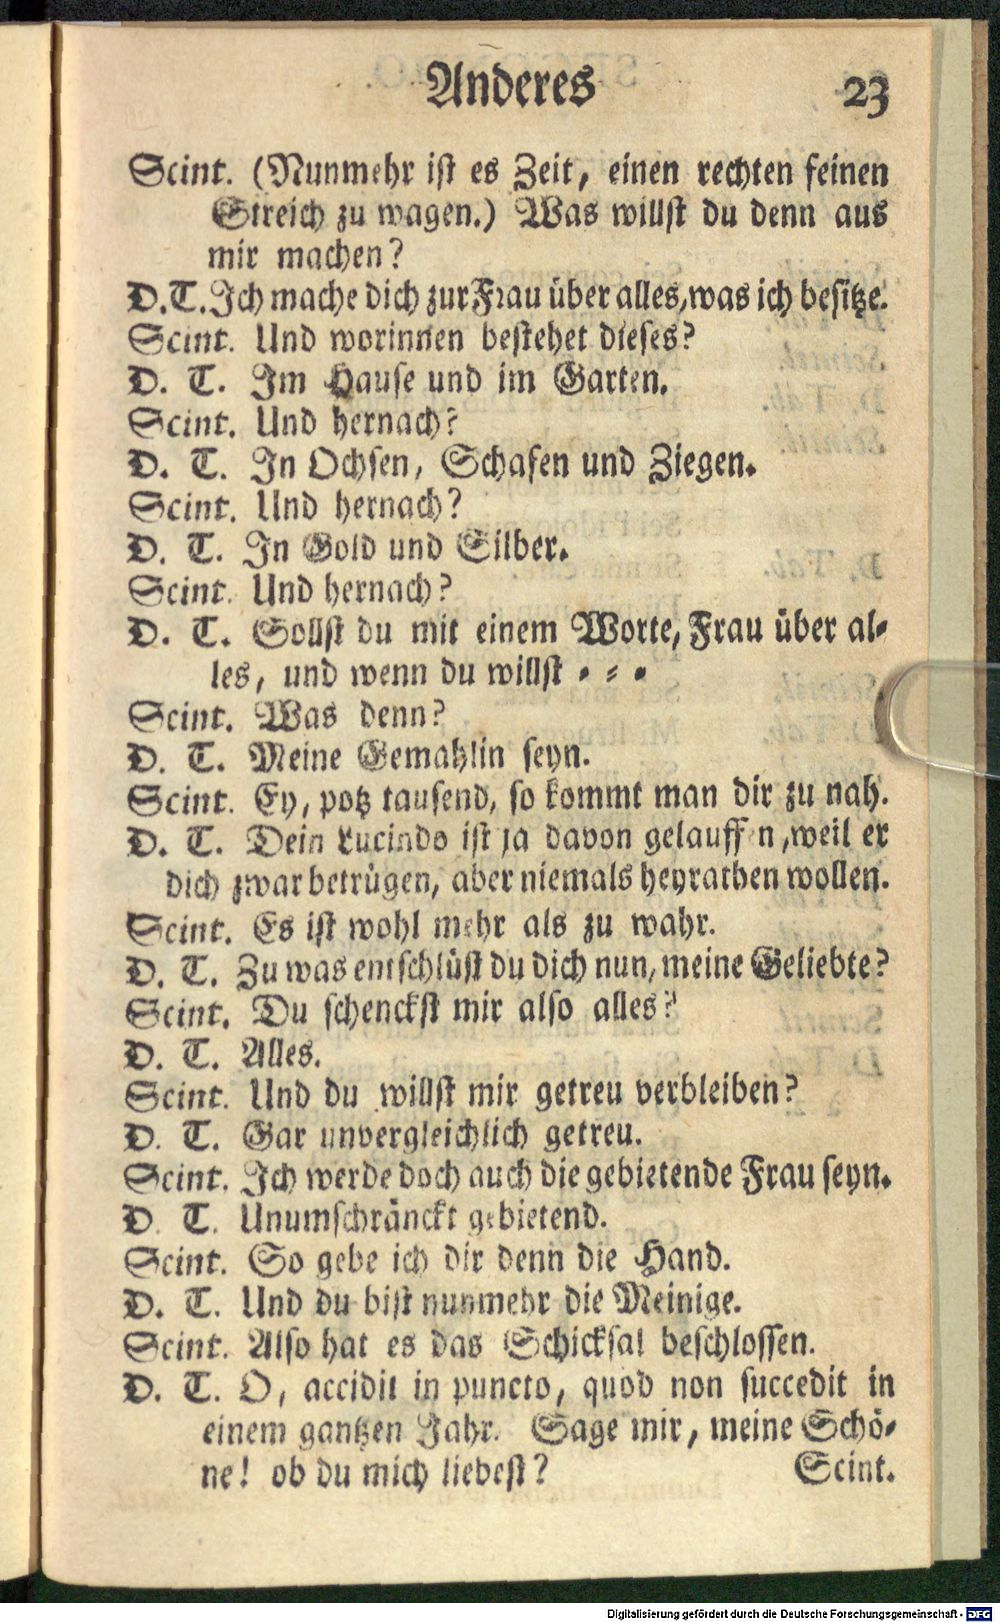 Anderes 23
Scint. (Nunmehr ist es Zeit, einen rechten feinen
Streich zu wagen.) Was willst du denn aus
mir machen?
D.T. Ich mache dich zur Frau über alles, was ich besitze.
Scint. Und worinnen bestehet dieses?
D. T. Im Hause und im Garten.
Scint. Und hernach?
D. T. In Ochsen, Schafen und Ziegen.
Scint. Und hernach?
D. T. In Gold und Silber.
Scint. Und hernach?
D. T. Sollst du mit einem Worte, Frau über al-
les, und wenn du willst - - -
Scint. Was denn?
D. T. Meine Gemahlin seyn.
Scint. Ey, potz tausend, so kommt man dir zu nah.
D. T. Dein Lucindo ist ja davon gelauff n, weil er
dich zwar betrügen, aber niemals heyrathen wollen.
Scint. Es ist wohl mehr als zu wahr.
D. T. Zu was entschlüst du dich nun, meine Geliebte?
Scint. Du schenckst mir also alles?
D. T. Alles.
Scint. Und du willst mir getreu verbleiben?
D. T. Gar unvergleichlich getreu.
Scint. Ich werde doch auch die gebietende Frau seyn.
D. T. Unumschränckt gebietend.
Scint. So gebe ich dir denn die Hand.
D. T. Und du bist nunmehr die Meinige.
Scint. Also hat es das Schicksal beschlossen.
D. T. O, accidit in puncto, quod non succedit in
einem gantzen Jahr. Sage mir, meine Schö-
ne! ob du mich liebest? Scint.
Digitalisierung gefördert durch die Deutsche Forschungsgemeinschaft - DFG